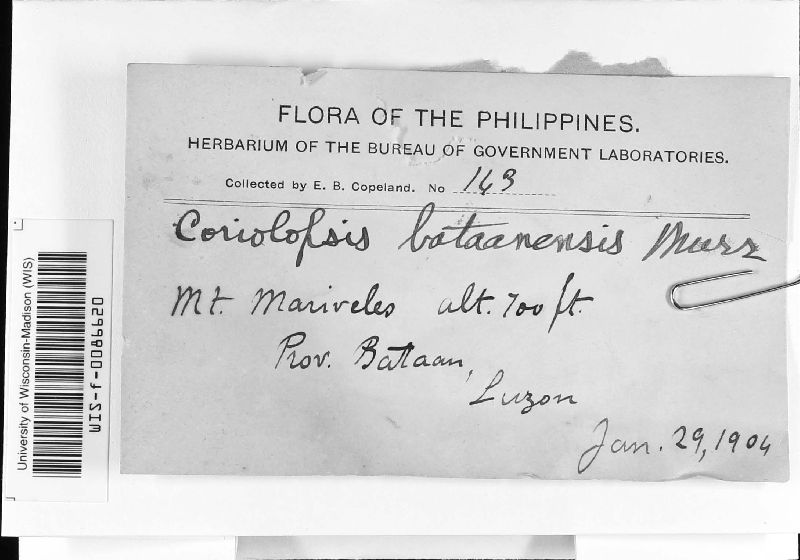 FLORA OF THE PHILIPPINES.
HERBARIUM OF THE BUREAU OF GOVERNMENT LABORATORIES.
Collected by E. B. Copeland. No 143
Coriolopsis bataanensis Murr
Mt. Mariveles alt. 700 ft.
Prov. Bataan,
Luzon
Jan. 29, 1904
University of Wisconsin-Madison (WIS)
WIS-f-0086620